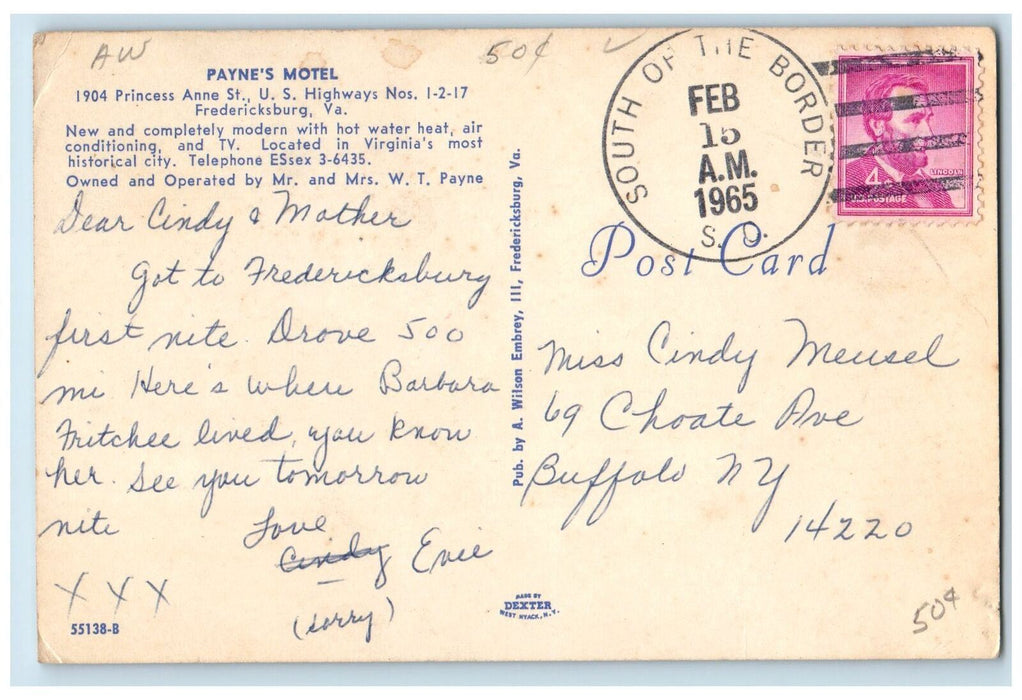 AW
50¢
PAYNE'S MOTEL
1904 Princess Anne St., U. S. Highways Nos. 1-2-17
Fredericksburg, Va.
New and completely modern with hot water heat, air
conditioning, and TV. Located in Virginia's most
historical city. Telephone ESsex 3-6435.
Owned and Operated by Mr. and Mrs. W. T. Payne
Dear Cindy & Mother
Got to Fredericksburg
first nite. Drove 500
mi Here's where Barbara
Fritchee lived, you know
her. See you tomorrow
nite
Love
Cindy Evie
(sorry)
X X X
55138-B
Pub. by A. Wilson Embrey, III, Fredericksburg, Va.
MADE BY
DEXTER
WEST NYACK, N.Y.
SOUTH OF THE BORDER
FEB
15
A.M.
1965
S.
LINCOLN
4¢
POSTAGE
Post Card
Miss Cindy Meusel
69 Choate Ave
Buffalo NY
14220
50¢